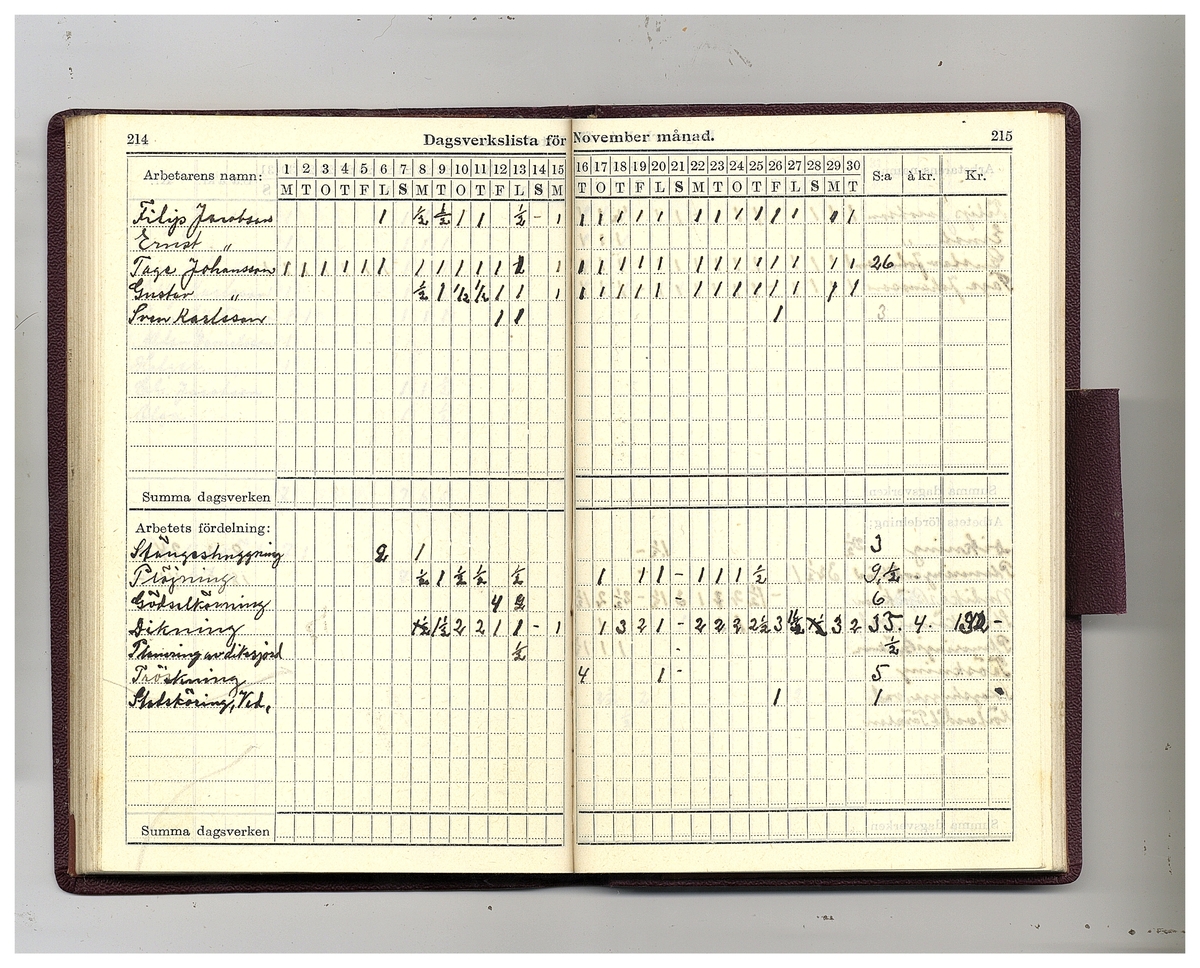 214 Dagsverkslista för November månad. 215
Arbetarens namn: 1 2 3 4 5 6 7 8 9 10 11 12 13 14 15 16 17 18 19 20 21 22 23 24 25 26 27 28 29 30 S:a à kr. Kr.
M T O T F L S M T O T F L S M T O T F L S M T O T F L S M T
Filip Jacobson 1 ½ ½ 1 1 ½ - 1 1 1 1 1 1 1 1 1 1 1 1 1 1
Ernst "
Tage Johansson 1 1 1 1 1 1 1 1 1 1 1 1 1 1 1 1 1 1 1 1 1 1 1 1 1 1 26
Gustav " ½ 1 ½ ½ 1 1 1 1 1 1 1 1 1 1 1 1 1 1 1 1
Sven Karlsson 1 1 1 3
Summa dagsverken
Arbetets fördelning:
Stångshuggning 2 1 3
Plöjning ½ 1 ½ ½ ½ 1 1 1 - 1 1 1 ½ 9,½
Gödselkörning 4 2 6
Dikning 1½ 2 2 1 1 - 1 1 3 2 1 - 2 2 2 2 2½ 3 3 2 35. 4.
Planering av dikesjord ½ - ½
Tröskning 4 1 - 5
Ved, 1 1
Summa dagsverken